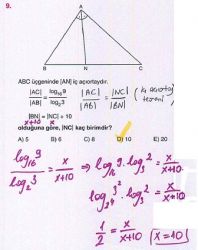 9.
A
B
N
C
ABC üçgeninde [AN] iç açıortaydır.
|AC| / |AB| = log₁₆9 / log₂3
|AC| / |AB| = |NC| / |BN| (iç açıortay teoremi)
|BN| = |NC| + 10
x+10 x
olduğuna göre, |NC| kaç birimdir?
A) 5 B) 6 C) 8 D) 10 E) 20
log₁₆9 / log₂3 = x / x+10 ⇒ log₁₆9 · log₃2 = x / x+10
log₂⁴3² · log₃2 = x / x+10
1/2 = x / x+10 (x=10)